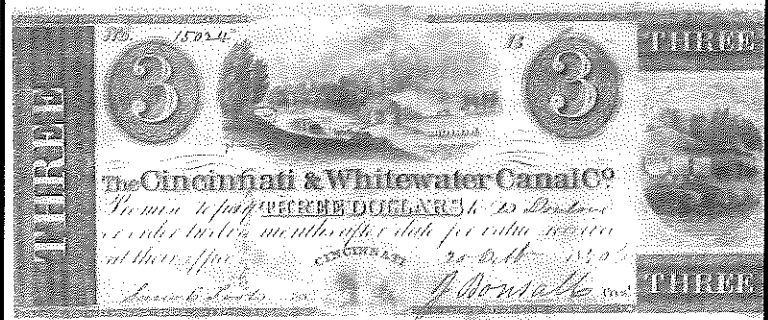 No. 15024 B
THREE
3 3
THREE
The Cincinnati & Whitewater Canal Co.
Promise to pay THREE DOLLARS to
or order twelve months after date for value
at their office
CINCINNATI
J Bonsall
THREE